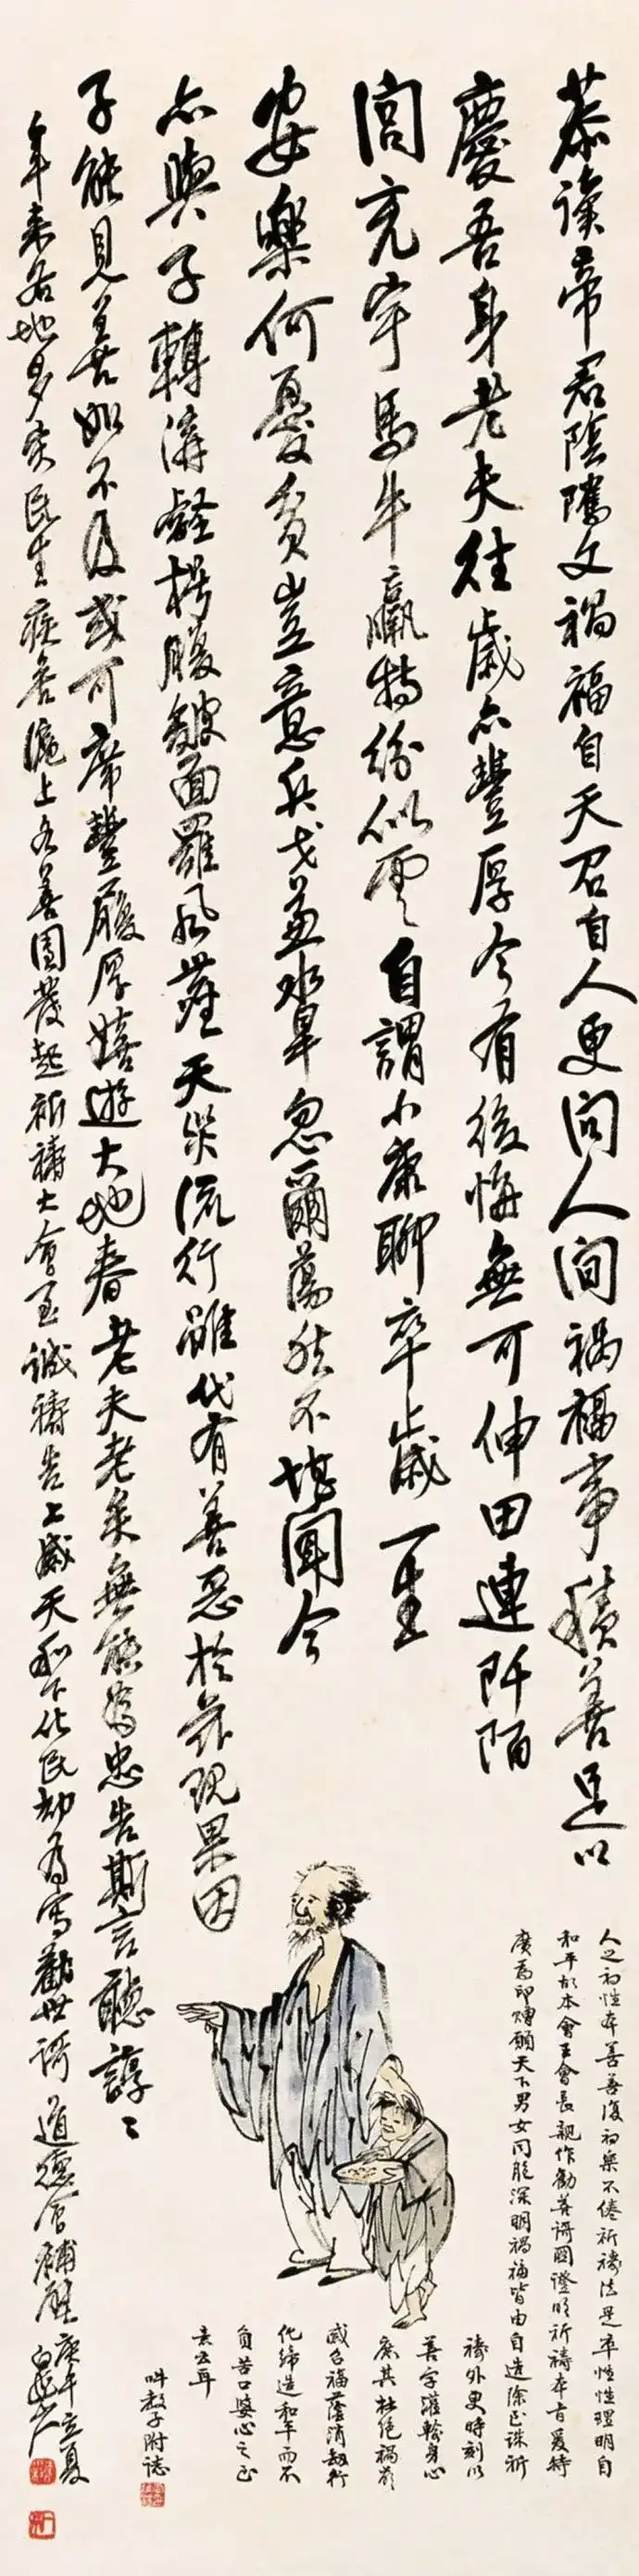 恭讀帝君陰隲文禍福自天召自人更問人間禍福事積善足以
慶吾身老夫往歲亦豐厚今有後悔無可伸田連阡陌
閭充宇馬牛羸特紛似雲自謂小康聊卒歲一生
安樂何憂貧豈意兵戈兼水旱忽爾蕩然不堪聞今
亦與子轉溝壑枵腹皴面罹風塵天災流行雖代有善惡於茲現果因
子能見善如不及或可席豐履厚嬉遊大地春老夫老矣無能為忠告斯言聽諄〻
年來各地多災民生疾苦滬上各善團發起祈禱大會至誠禱告上感天和下化民劫為寫勸世詞道德宫補壁
庚午立夏
白龍山人
人之初性本善善復初樂不倦祈禱法是率性性理明自
和平故本會王會長親作勸善詞圖證明祈禱本旨爰特
廣為印贈願天下男女同胞深明禍福皆由自造除正誅祈
禱外更時刻以
善字灌輸身心
庶其杜絕禍爭
感召福蔭消劫行
化締造和平而不
負苦口婆心之正
去云耳
教子附誌